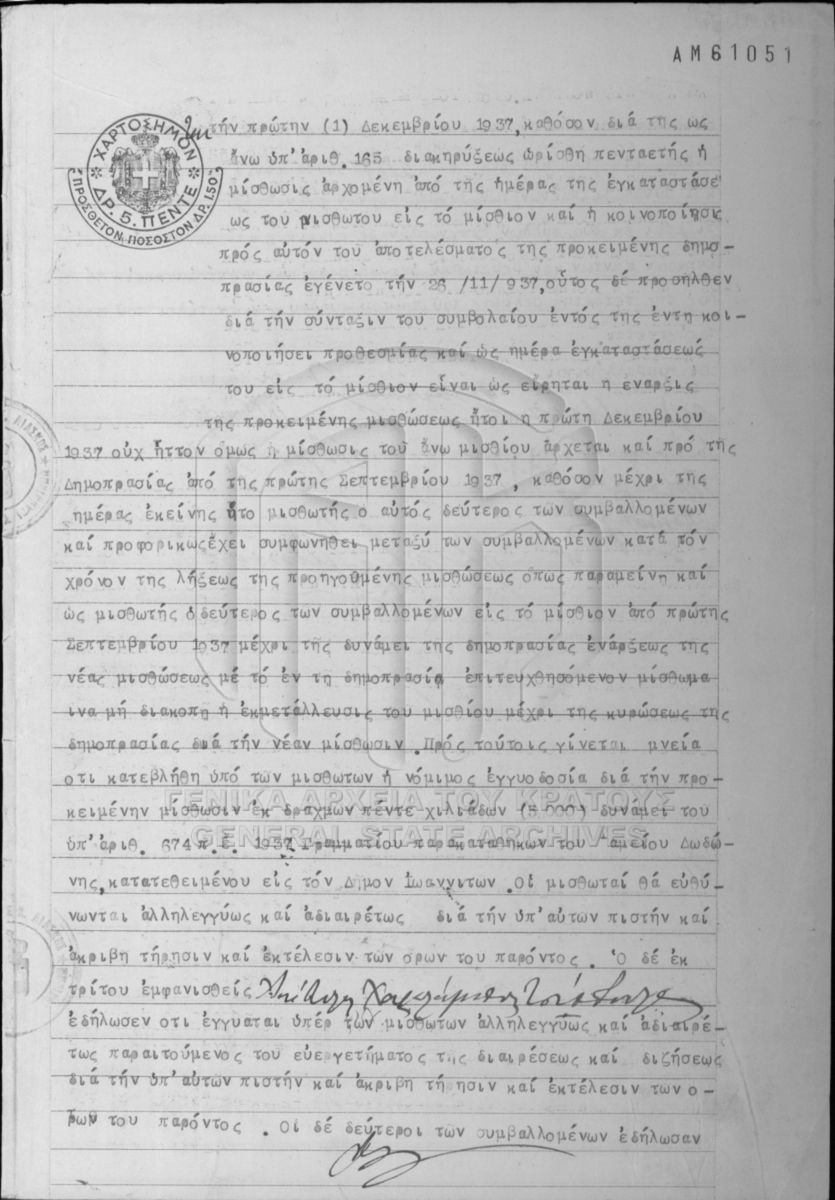 ΑΜ61051
ΧΑΡΤΟΣΗΜΟΝ
ΔΡ. 5. ΠΕΝΤΕ
ΠΡΟΣΘΕΤΟΝ ΠΟΣΟΣΤΟΝ ΔΡ. 1.50
τήν πρώτην (1) Δεκεμβρίου 1937, καθόσον διά της ως
άνω υπ' αριθ. 165 διακηρύξεως ωρίσθη πενταετής ή
μίσθωσις αρχομένη από της ημέρας της εγκαταστάσε
ως του μισθωτου εις τό μίσθιον καί ή κοινοποίησις
πρός αυτόν του αποτελέσματος της προκειμένης δημο-
πρασίας εγένετο τήν 26 /11/937, ούτος δέ προσήλθεν
διά τήν σύνταξιν του συμβολαίου εντός της έντη κοι-
νοποιήσει προθεσμίας καί ώς ημέρα εγκαταστάσεώς
του εις τό μίσθιον είναι ώς είρηται η εναρξις
της προκειμένης μισθώσεως ήτοι η πρώτη Δεκεμβρίου
1937 ούχ ήττον όμως η μίσθωσις του άνω μισθίου άρχεται καί πρό της
Δημοπρασίας από της πρώτης Σεπτεμβρίου 1937, καθόσον μέχρι της
ημέρας εκείνης ήτο μισθωτής ο αυτός δεύτερος των συμβαλλομένων
καί προφορικως έχει συμφωνηθει μεταξύ των συμβαλλομένων κατά τόν
χρόνον της λήξεως της προηγουμένης μισθώσεως όπως παραμείνη καί
ώς μισθωτής ό δεύτερος των συμβαλλομένων εις τό μίσθιον από πρώτης
Σεπτεμβρίου 1937 μέχρι της δυνάμει της δημοπρασίας ενάρξεως της
νέας μισθώσεως μέ τό έν τη δημοπρασία επιτευχθησόμενον μίσθωμα
ινα μή διακοπη ή εκμετάλλευσις του μισθίου μέχρι της κυρώσεως της
δημοπρασίας διά τήν νέαν μίσθωσιν. Πρός τούτοις γίνεται μνεία
οτι κατεβλήθη υπό των μισθωτων ή νόμιμος εγγυοδοσία διά τήν προ-
κειμένην μίσθωσιν εκ δραχμων πέντε χιλιάδων (5.000) δυνάμει του
υπ' αριθ. 674 π.έ. 1937 Γραμματίου παρακαταθηκων του Ταμείου Δωδώ-
νης, κατατεθειμένου εις τόν Δημον Ιωαννιτων. Οί μισθωταί θά ευθύ-
νωνται αλληλεγγύως καί αδιαιρέτως διά τήν υπ' αυτων πιστήν καί
ακριβη τήρησιν καί εκτέλεσιν των όρων του παρόντος. Ό δέ εκ
τρίτου εμφανισθείς
εδήλωσεν οτι εγγυαται υπέρ των μισθωτων αλληλεγγύως καί αδιαιρέ-
τως παραιτούμενος του ευεργετήματος της διαιρέσεως καί διζήσεως
διά τήν υπ' αυτων πιστήν καί ακριβη τήρησιν καί εκτέλεσιν των ο-
ρων του παρόντος. Οί δέ δεύτεροι των συμβαλλομένων εδήλωσαν
ΓΕΝΙΚΑ ΑΡΧΕΙΑ ΤΟΥ ΚΡΑΤΟΥΣ
GENERAL STATE ARCHIVES